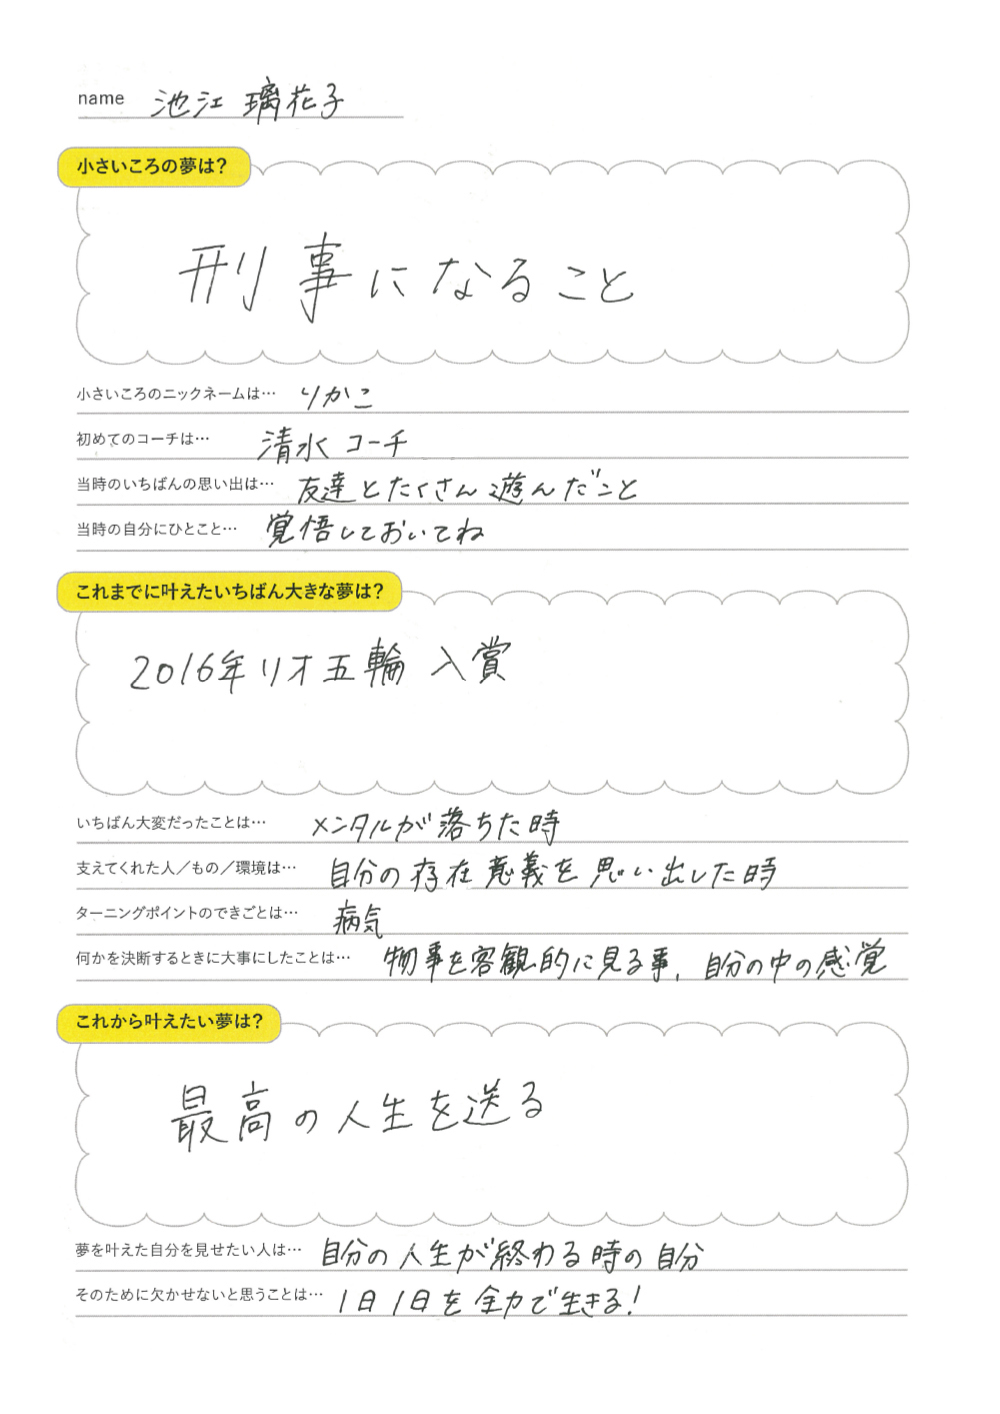 name 池江 璃花子
小さいころの夢は?
刑事になること
小さいころのニックネームは… りかこ
初めてのコーチは… 清水コーチ
当時のいちばんの思い出は… 友達とたくさん遊んだこと
当時の自分にひとこと… 覚悟しておいてね
これまでに叶えたいちばん大きな夢は?
2016年リオ五輪 入賞
いちばん大変だったことは… メンタルが落ちた時
支えてくれた人/もの/環境は… 自分の存在意義を思い出した時
ターニングポイントのできごとは… 病気
何かを決断するときに大事にしたことは… 物事を客観的に見る事、自分の中の感覚
これから叶えたい夢は?
最高の人生を送る
夢を叶えた自分を見せたい人は… 自分の人生が終わる時の自分
そのために欠かせないと思うことは… 1日1日を全力で生きる!